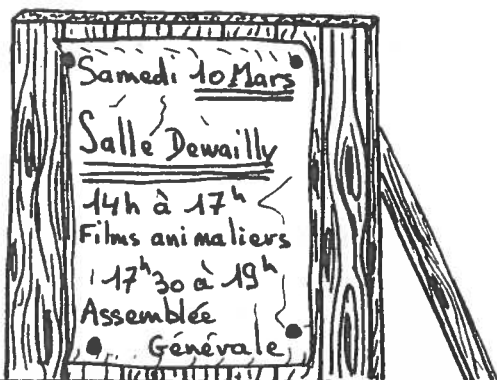 Samedi 10 Mars
Salle Dewailly
14h à 17h
Films animaliers
17h30 à 19h
Assemblée
Générale